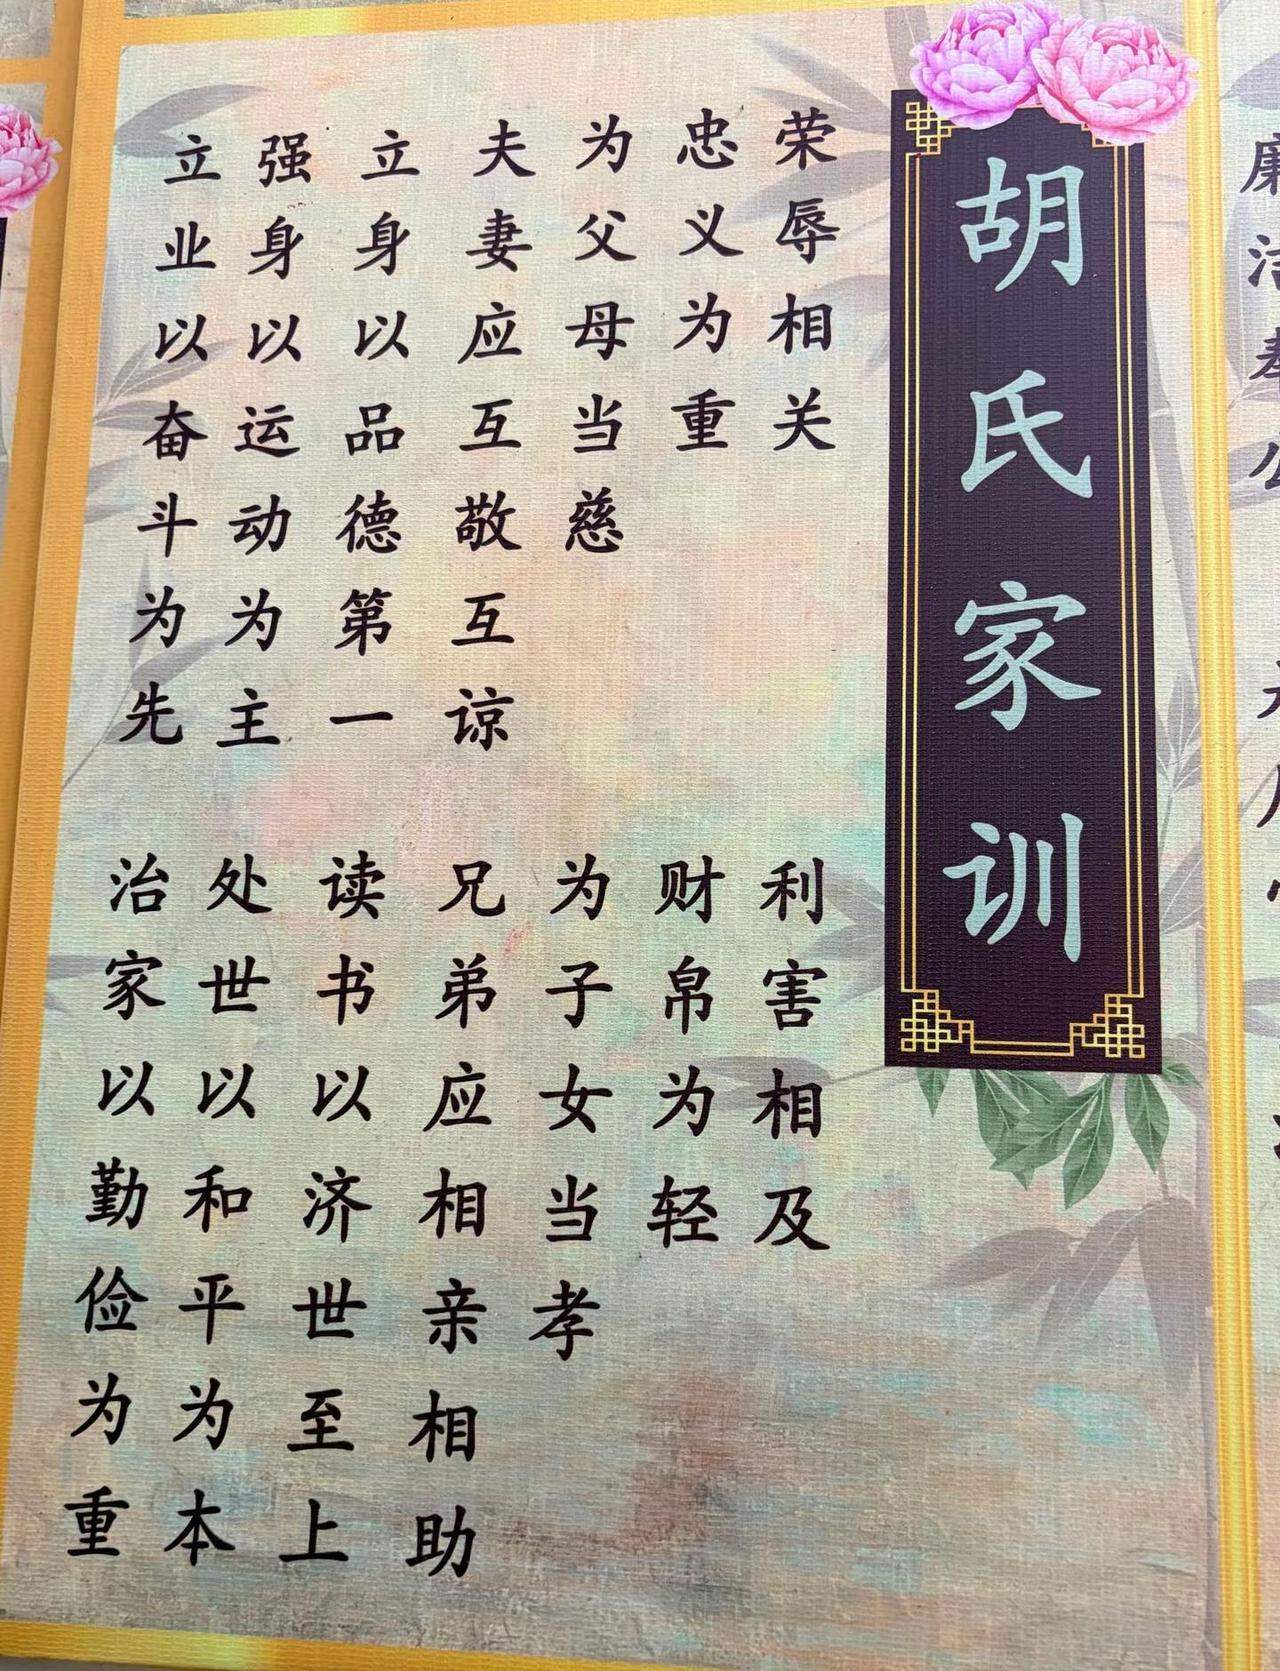 胡氏家训
荣辱相关
利害相及
忠义为重
财帛为轻
为父母当慈
为子女当孝
夫妻应互敬互谅
兄弟应相亲相助
立身以品德第一
读书以济世至上
强身以运动为主
处世以和平为本
立业以奋斗为先
治家以勤俭为重